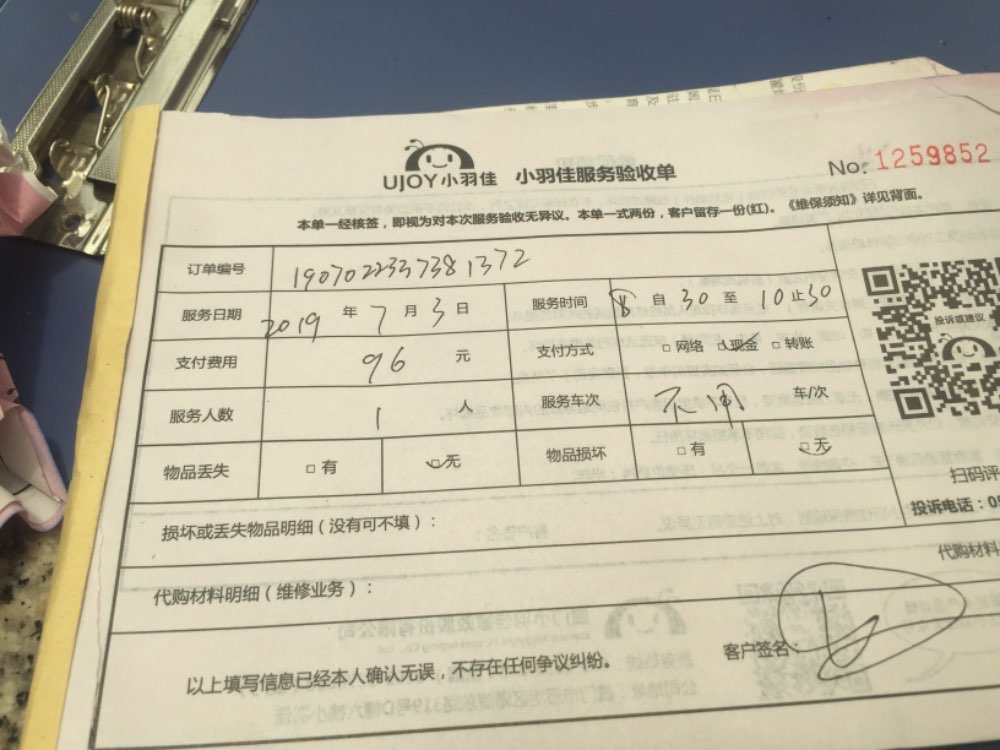 UJOY小羽佳 小羽佳服务验收单
No: 1259852
本单一经核签，即视为对本次服务验收无异议。本单一式两份，客户留存一份(红)。《维保须知》详见背面。
订单编号 1907022337381372
服务日期 2019 年 7 月 3 日 服务时间 8 自 30 至 10 止 30
支付费用 96 元 支付方式 □网络 □现金 □转账
服务人数 1 人 服务车次 车/次
物品丢失 □有 □无 物品损坏 □有 □无
投诉或建议
扫码评
投诉电话：05
损坏或丢失物品明细（没有可不填）：
代购材料
代购材料明细（维修业务）：
以上填写信息已经本人确认无误，不存在任何争议纠纷。
客户签名：